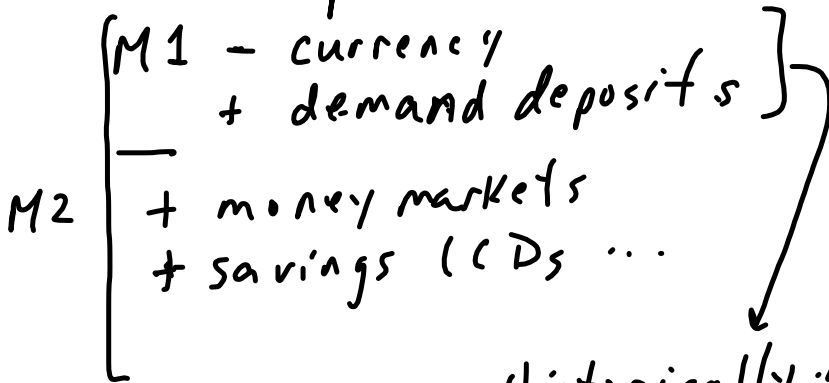 M1 - currency
+ demand deposits
M2
+ money markets
+ savings (CDs ...
historically